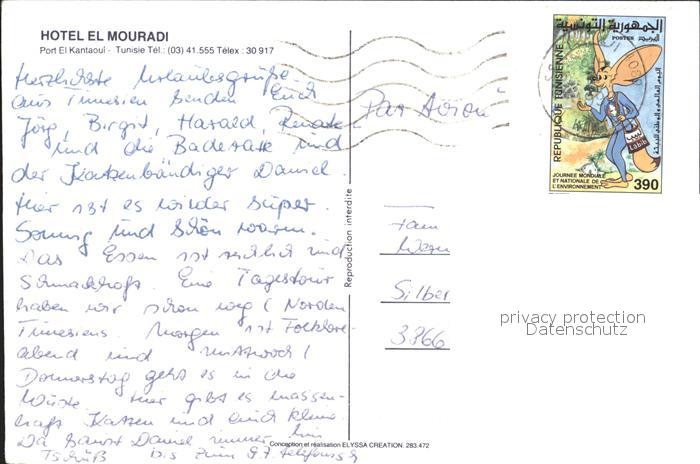 HOTEL EL MOURADI
Port El Kantaoui - Tunisie Tél.: (03) 41.555 Télex : 30 917
Herzlichste Urlaubsgrüße
aus Tunesien senden Euch
Jörg, Birgit, Harald, Renate
und die Baderatte und
der Katzenbändiger Daniel.
Hier ist es wieder super.
Sonnig und schön warm.
Das Essen ist reichlich und
schmackhaft. Eine Tagestour
haben wir schon weg (Norden
Tunesiens. Morgen ist Folklore-
abend und Mittwoch/
Donnerstag geht es in die
Wüste. Hier gibt es massen-
haft Katzen und auch kleine.
Da saust Daniel immer hin
Tschüß bis zum 9.7.
"Par Avion"
Reproduction interdite
Fam
Silber
3366
privacy protection
Datenschutz
Conception et réalisation ELYSSA CREATION. 283.472
الجمهورية التونسية
POSTES البريد
REPUBLIQUE TUNISIENNE
Labib
JOURNEE MONDIALE
ET NATIONALE DE
L'ENVIRONNEMENT
390